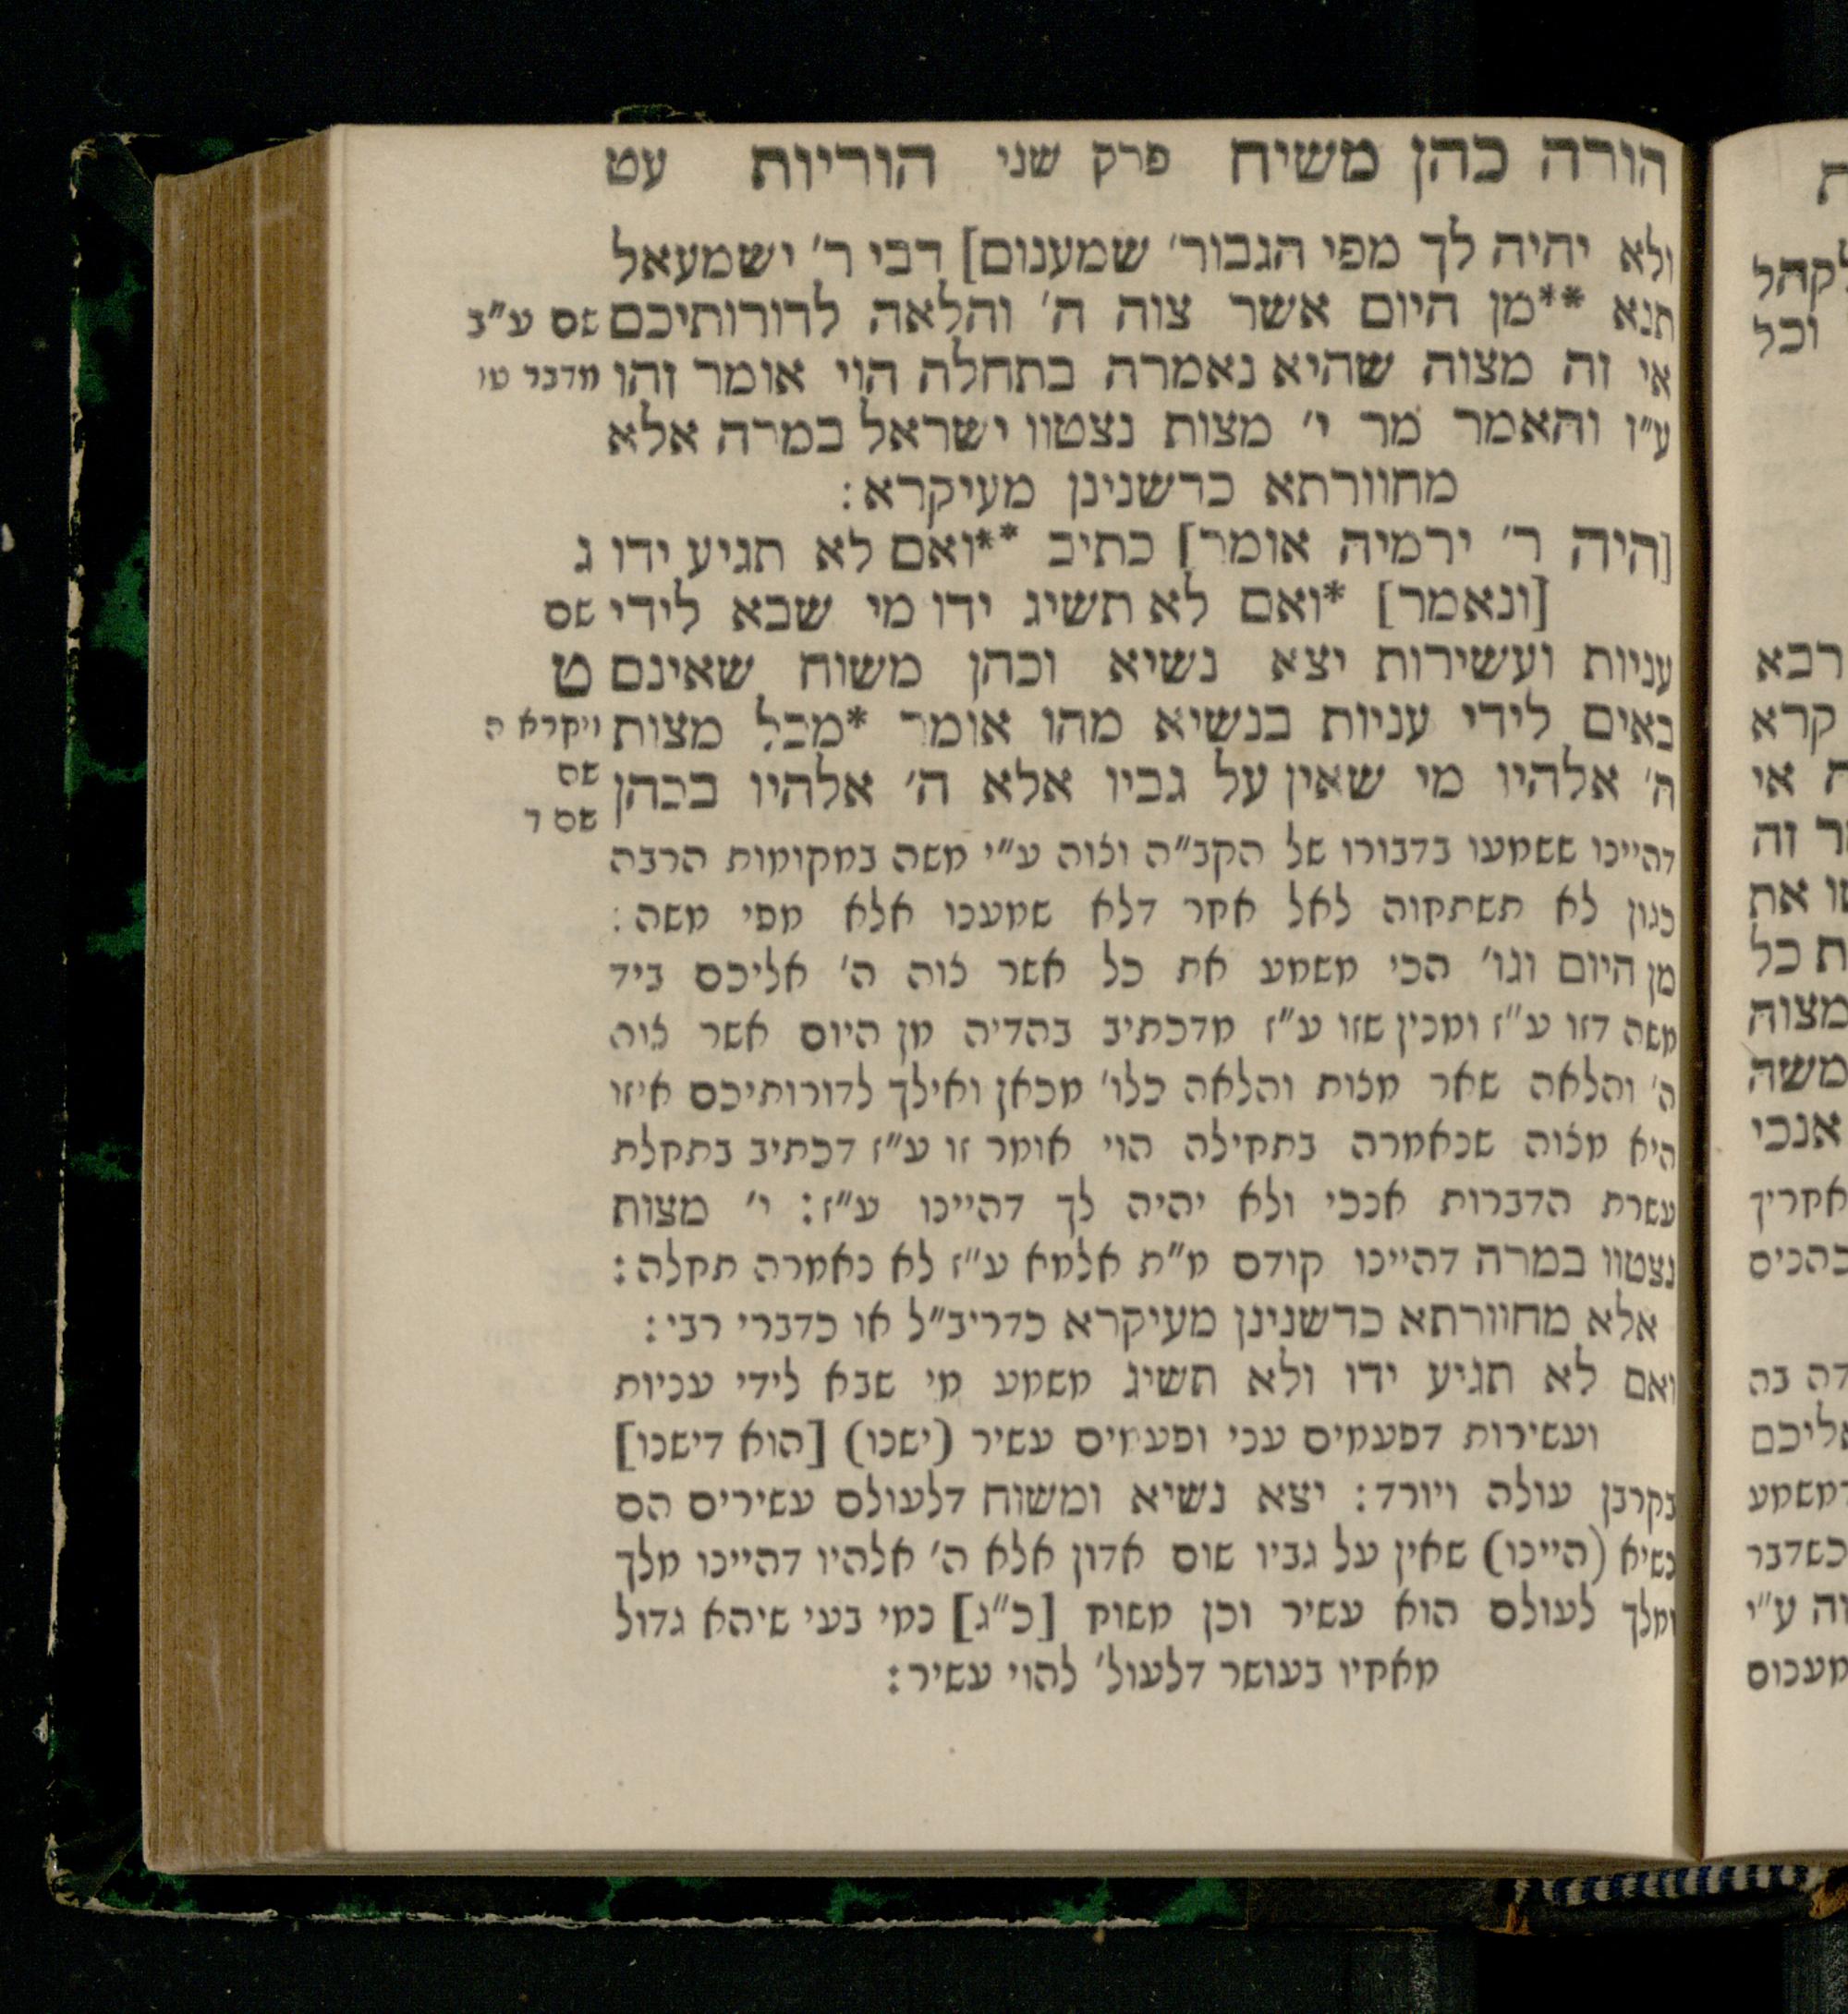 הורה כהן משיח פרק שני הוריות עט
ולא יהיה לך מפי הגבור׳ שמענום] דבי ר׳ ישמעאל
תנא **מן היום אשר צוה ה׳ והלאה לדורותיכם שם ע״ב
אי זה מצוה שהיא נאמרה בתחלה הוי אומר זהו מדבר טו
ע״ז והאמר מר י׳ מצות נצטוו ישראל במרה אלא
מחוורתא כדשנינן מעיקרא:
[והיה ר׳ ירמיה אומר] כתיב **ואם לא תגיע ידו ג
[ונאמר] *ואם לא תשיג ידו מי שבא לידי שם
עניות ועשירות יצא נשיא וכהן משוח שאינם ט
באים לידי עניות בנשיא מהו אומר *מכל מצות ויקרא ה
ה׳ אלהיו מי שאין על גביו אלא ה׳ אלהיו בכהן שם
שם ד
דהיינו ששמעו בדבורו של הקב״ה וצוה ע״י משה במקומות הרבה
כגון לא תשתחוה לאל אחר דלא שמענו אלא מפי משה:
מן היום וגו׳ הכי משמע את כל אשר צוה ה׳ אליכם ביד
משה דזו ע״ז ומנין שזו ע״ז מדכתיב בהדיה מן היום אשר צוה
ה׳ והלאה שאר מצות והלאה כלו׳ מכאן ואילך לדורותיכם איזו
היא מצוה שנאמרה בתחילה הוי אומר זו ע״ז דכתיב בתחלת
עשרת הדברות אנכי ולא יהיה לך דהיינו ע״ז: י׳ מצות
נצטוו במרה דהיינו קודם מ״ת אלמא ע״ז לא נאמרה תחלה:
אלא מחוורתא כדשנינן מעיקרא כדריב״ל או כדברי רבי:
ואם לא תגיע ידו ולא תשיג משמע מי שבא לידי עניות
ועשירות דפעמים עני ופעמים עשיר (ישנו) [הוא דישנו]
בקרבן עולה ויורד: יצא נשיא ומשוח דלעולם עשירים הם
נשיא (היינו) שאין על גביו שום אדון אלא ה׳ אלהיו דהיינו מלך
ומלך לעולם הוא עשיר וכן משוח [כ״ג] נמי בעי שיהא גדול
מאחיו בעושר דלעול׳ להוי עשיר: